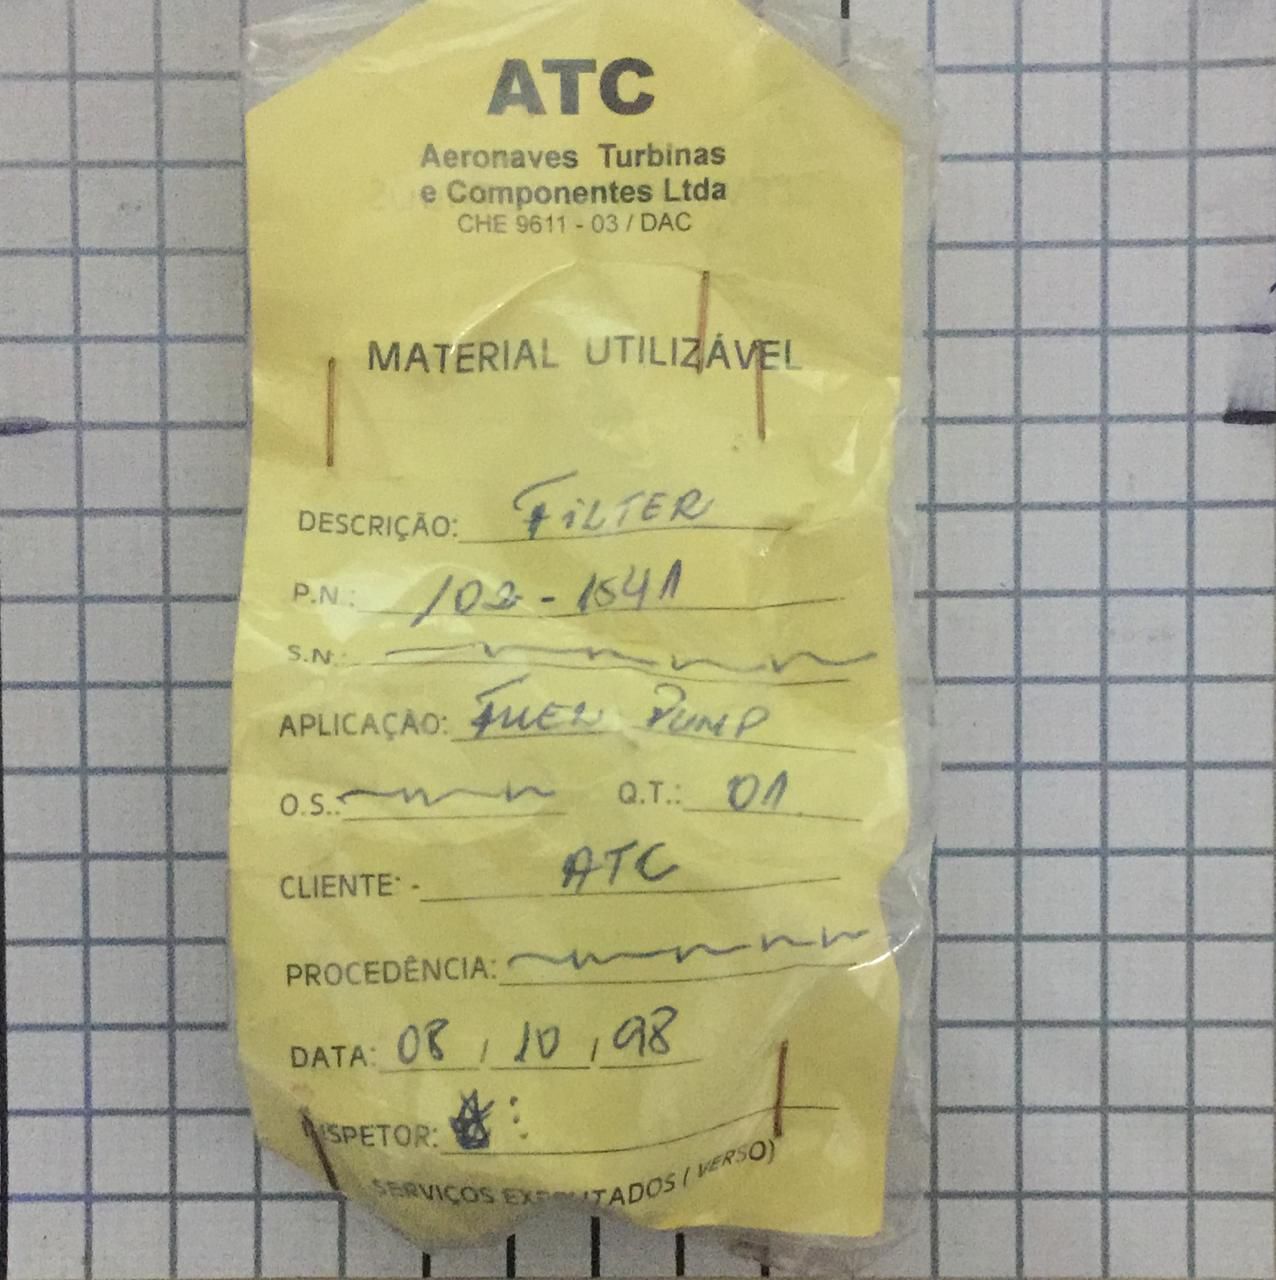 ATC
Aeronaves Turbinas
e Componentes Ltda
CHE 9611 - 03 / DAC
MATERIAL UTILIZÁVEL
DESCRIÇÃO: FiLTER
P.N.: 102-1541
S.N.:
APLICAÇÃO: FUEL PUMP
O.S.: Q.T.: 01
CLIENTE: - ATC
PROCEDÊNCIA:
DATA: 08 / 10 / 98
INSPETOR:
SERVIÇOS EXECUTADOS ( VERSO)